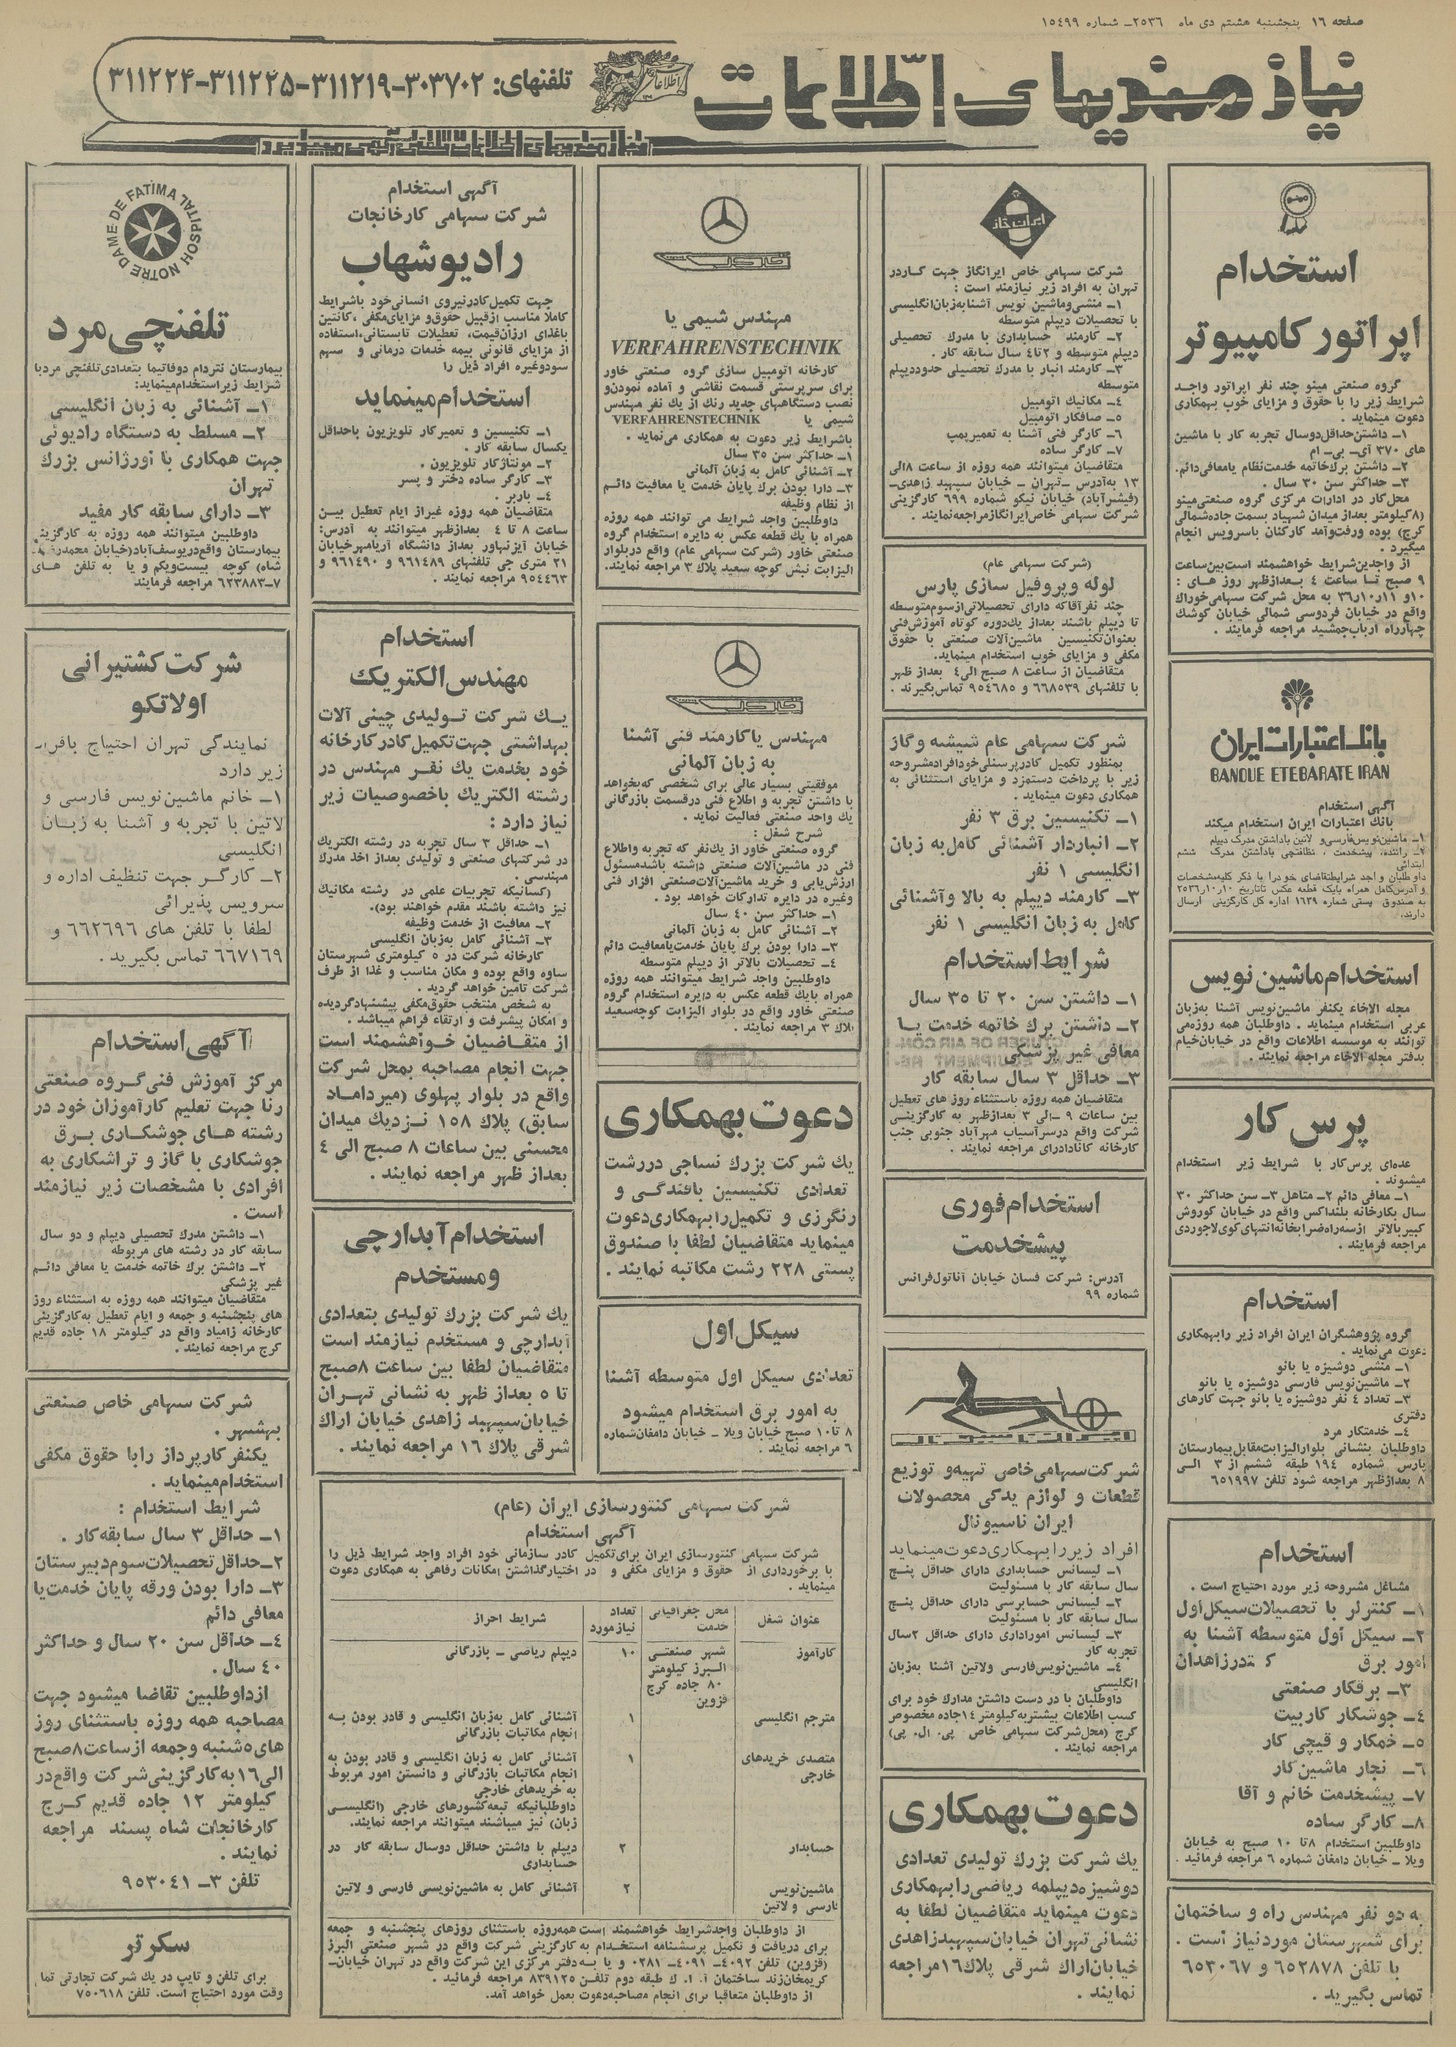 صفحه ۱۶ پنجشنبه هشتم دی ماه ۲۵۳۶ـ شماره ۱۵۴۹۹
نیازمندیهای اطلاعات
تلفنهای: ۳۰۳۷۰۲-۳۱۱۲۱۹-۳۱۱۲۲۵-۳۱۱۲۲۴
استخدام
اپراتور کامپیوتر
گروه صنعتی مینو چند نفر اپراتور واجد
شرایط زیر را با حقوق و مزایای خوب بهمکاری
دعوت مینماید .
۱ـ داشتن حداقل دوسال تجربه کار با ماشین
های ۳۷۰ آی- بی- ام
۲ـ داشتن برک خاتمه خدمت نظام یا معافی دائم.
۳ـ حداکثر سن ۳۰ سال .
محل کار در ادارات مرکزی گروه صنعتی مینو
(۸ کیلومتر بعداز میدان شهیاد بسمت جاده شمالی
کرج) بوده ورفت وآمد کارکنان باسرویس انجام
میگیرد .
از واجدین شرایط خواهشمند است بین ساعت
۹ صبح تا ساعت ۴ بعدازظهر روز های :
۱۰و ۱۱ر۱۰ر۳۶ به محل شرکت سهامی خوراک
واقع در خیابان فردوسی شمالی خیابان کوشک
چهارراه ارباب جمشید مراجعه فرمایند .
بانک اعتبارات ایران
BANQUE ETEBARATE IRAN
آگهی استخدام
بانک اعتبارات ایران استخدام میکند
۱ـ ماشین نویس فارسی و لاتین باداشتن مدرک دیپلم
۲ـ راننده، پیشخدمت ، نظافتچی باداشتن مدرک ششم
ابتدائی
داوطلبان واجد شرایط تقاضای خودرا با ذکر کلیه مشخصات
و آدرس کامل همراه بایک قطعه عکس تاتاریخ ۱۰ر۱۰ر۲۵۳۶
به صندوق پستی شماره ۱۶۳۹ اداره کل کارگزینی ارسال
دارند.
استخدام ماشین نویس
مجله الاخاء یکنفر ماشین نویس آشنا به زبان
عربی استخدام مینماید . داوطلبان همه روزه می
توانند به موسسه اطلاعات واقع در خیابان خیام
بدفتر مجله الاخاء مراجعه نمایند .
پرس کار
عده‌ای پرس کار با شرایط زیر استخدام
میشوند .
۱ـ معافی دائم ۲ـ متاهل ۳ـ سن حداکثر ۳۰
سال بکارخانه بلنداکس واقع در خیابان کوروش
کبیر بالاتر ازسه راه ضرابخانه انتهای کوی لاجوردی
مراجعه فرمایند .
استخدام
گروه پژوهشگران ایران افراد زیر را بهمکاری
دعوت می نماید .
۱ـ منشی دوشیزه یا بانو
۲ـ ماشین نویس فارسی دوشیزه یا بانو
۳ـ تعداد ۴ نفر دوشیزه یا بانو جهت کارهای
دفتری
۴ـ خدمتکار مرد
داوطلبان بنشانی بلوار الیزابت مقابل بیمارستان
پارس شماره ۱۹۴ طبقه ششم از ۳ الی
۸ بعدازظهر مراجعه شود تلفن ۶۵۱۹۹۷
استخدام
مشاغل مشروحه زیر مورد احتیاج است .
۱ـ کنترلر با تحصیلات سیکل اول
۲ـ سیکل اول متوسطه آشنا به
امور برق
۳ـ برقکار صنعتی
۴ـ جوشکار کاربیت
۵ـ خمکار و قیچی کار
۶ـ نجار ماشین کار
۷ـ پیشخدمت خانم و آقا
۸ـ کارگر ساده
داوطلبین استخدام ۸تا ۱۰ صبح به خیابان
ویلا ـ خیابان دامغان شماره ۶ مراجعه فرمائید .
به دو نفر مهندس راه و ساختمان
برای شهرستان موردنیاز است .
با تلفن ۶۵۲۸۷۸ و ۶۵۳۰۶۷
تماس بگیرید .
ایران گاز
شرکت سهامی خاص ایرانگاز جهت کادر در
تهران به افراد زیر نیازمند است :
۱ـ منشی وماشین نویس آشنابه زبان انگلیسی
با تحصیلات دیپلم متوسطه
۲ـ کارمند حسابداری با مدرک تحصیلی
دیپلم متوسطه و ۲تا۴ سال سابقه کار .
۳ـ کارمند انبار با مدرک تحصیلی حدوددیپلم
متوسطه
۴ـ مکانیک اتومبیل
۵ـ صافکار اتومبیل
۶ـ کارگر فنی آشنا به تعمیرپمپ
۷ـ کارگر ساده
متقاضیان میتوانند همه روزه از ساعت ۸الی
۱۳ به آدرس ـ تهران ـ خیابان سپهبد زاهدی-
(فیشرآباد) خیابان نیکو شماره ۶۹۹ کارگزینی
شرکت سهامی خاص ایرانگاز مراجعه نمایند .
(شرکت سهامی عام)
لوله و پروفیل سازی پارس
چند نفر آقا که دارای تحصیلاتی از سوم متوسطه
تا دیپلم باشند بعداز یک دوره کوتاه آموزش فنی
بعنوان تکنیسین ماشین آلات صنعتی با حقوق
مکفی و مزایای خوب استخدام مینماید.
متقاضیان از ساعت ۸ صبح الی ۴ بعداز ظهر
با تلفنهای ۶۶۸۵۳۹ و ۹۵۴۶۸۵ تماس بگیرند .
شرکت سهامی عام شیشه و گاز
بمنظور تکمیل کادر پرسنلی خودافرادمشروحه
زیر با پرداخت دستمزد و مزایای استثنائی به
همکاری دعوت مینماید .
۱ـ تکنیسین برق ۳ نفر
۲ـ انباردار آشنائی کامل به زبان
انگلیسی ۱ نفر
۳ـ کارمند دیپلم به بالا وآشنائی
کامل به زبان انگلیسی ۱ نفر
شرایط استخدام
۱ـ داشتن سن ۲۰ تا ۳۵ سال
۲ـ داشتن برک خاتمه خدمت یا
معافی غیر پزشکی
۳ـ حداقل ۳ سال سابقه کار
متقاضیان همه روزه باستثناء روز های تعطیل
بین ساعات ۹ ـ الی ۳ بعدازظهر به کارگزینی
شرکت واقع درسرآسیاب مهرآباد جنوبی جنب
کارخانه کانادادرای مراجعه نمایند .
استخدام فوری
پیشخدمت
آدرس: شرکت فسان خیابان آناتول فرانس
شماره ۹۹
ایران ناسیونال
شرکت سهامی خاص تهیه و توزیع
قطعات و لوازم یدکی محصولات
ایران ناسیونال
افراد زیر را بهمکاری دعوت مینماید
۱ـ لیسانس حسابداری دارای حداقل پنج
سال سابقه کار با مسئولیت
۲ـ لیسانس حسابرسی دارای حداقل پنج
سال سابقه کار با مسئولیت
۳ـ لیسانس اموراداری دارای حداقل ۲سال
تجربه کار
۴ـ ماشین نویس فارسی ولاتین آشنا به زبان
انگلیسی
داوطلبان با در دست داشتن مدارک خود برای
کسب اطلاعات بیشتر به کیلومتر ۱۴ جاده مخصوص
کرج (محل شرکت سهامی خاص پی. ال. پی)
مراجعه نمایند .
دعوت بهمکاری
یک شرکت بزرک تولیدی تعدادی
دوشیزه دیپلمه ریاضی را بهمکاری
دعوت مینماید متقاضیان لطفا به
نشانی تهران خیابان سپهبدزاهدی
خیابان اراک شرقی پلاک ۱۶ مراجعه
نمایند .
خاور
مهندس شیمی یا
VERFAHRENSTECHNIK
کارخانه اتومبیل سازی گروه صنعتی خاور
برای سرپرستی قسمت نقاشی و آماده نمودن و
نصب دستگاههای جدید رنک از یک نفر مهندس
شیمی یا VERFAHRENSTECHNIK
باشرایط زیر دعوت به همکاری می نماید .
۱ـ حداکثر سن ۳۵ سال
۲ـ آشنائی کامل به زبان آلمانی
۳ـ دارا بودن برک پایان خدمت یا معافیت دائم
از نظام وظیفه
داوطلبین واجد شرایط می توانند همه روزه
همراه با یک قطعه عکس به دایره استخدام گروه
صنعتی خاور (شرکت سهامی عام) واقع دربلوار
الیزابت نبش کوچه سعید پلاک ۳ مراجعه نمایند.
خاور
مهندس یا کارمند فنی آشنا
به زبان آلمانی
موفقیتی بسیار عالی برای شخصی که بخواهد
با داشتن تجربه و اطلاع فنی درقسمت بازرگانی
یک واحد صنعتی فعالیت نماید .
شرح شغل :
گروه صنعتی خاور از یک نفر که تجربه واطلاع
فنی در ماشین آلات صنعتی داشته باشد مسئول
ارزش یابی و خرید ماشین آلات صنعتی افزار فنی
وغیره در دایره تدارکات خواهد بود .
۱ـ حداکثر سن ۴۰ سال
۲ـ آشنائی کامل به زبان آلمانی
۳ـ دارا بودن برک پایان خدمت یا معافیت دائم
۴ـ تحصیلات بالاتر از دیپلم متوسطه
داوطلبین واجد شرایط میتوانند همه روزه
همراه بایک قطعه عکس به دایره استخدام گروه
صنعتی خاور واقع در بلوار الیزابت کوچه سعید
پلاک ۳ مراجعه نمایند .
دعوت بهمکاری
یک شرکت بزرک نساجی دررشت
تعدادی تکنیسین بافندگی و
رنگرزی و تکمیل را بهمکاری دعوت
مینماید متقاضیان لطفا با صندوق
پستی ۲۲۸ رشت مکاتبه نمایند .
سیکل اول
تعدادی سیکل اول متوسطه آشنا
به امور برق استخدام میشود
۸ تا ۱۰ صبح خیابان ویلا ـ خیابان دامغان شماره
۶ مراجعه نمائید .
آگهی استخدام
شرکت سهامی کارخانجات
رادیو شهاب
جهت تکمیل کادر نیروی انسانی خود باشرایط
کاملا مناسب ازقبیل حقوق و مزایای مکفی ، کانتین
باغذای ارزان قیمت، تعطیلات تابستانی، استفاده
از مزایای قانونی بیمه خدمات درمانی و سهم
سود و غیره افراد ذیل را
استخدام مینماید
۱ـ تکنیسین و تعمیر کار تلویزیون باحداقل
یکسال سابقه کار .
۲ـ مونتاژ کار تلویزیون .
۳ـ کارگر ساده دختر و پسر
۴ـ باربر .
متقاضیان همه روزه غیراز ایام تعطیل بین
ساعت ۸ تا ۴ بعدازظهر میتوانند به آدرس:
خیابان آیزنهاور بعداز دانشگاه آریامهر خیابان
۲۱ متری جی تلفنهای ۹۶۱۴۸۹ و ۹۶۱۴۹۰ و
۹۵۴۴۶۳ مراجعه نمایند .
استخدام
مهندس الکتریک
یک شرکت تولیدی چینی آلات
بهداشتی جهت تکمیل کادر کارخانه
خود بخدمت یک نفر مهندس در
رشته الکتریک با خصوصیات زیر
نیاز دارد :
۱ـ حداقل ۳ سال تجربه در رشته الکتریک
در شرکتهای صنعتی و تولیدی بعداز اخذ مدرک
مهندسی .
(کسانیکه تجربیات علمی در رشته مکانیک
نیز داشته باشند مقدم خواهند بود).
۲ـ معافیت از خدمت وظیفه
۳ـ آشنائی کامل به زبان انگلیسی
کارخانه شرکت در ۵ کیلومتری شهرستان
ساوه واقع بوده و مکان مناسب و غذا از طرف
شرکت تامین خواهد گردید .
به شخص منتخب حقوق مکفی پیشنهاد گردیده
و امکان پیشرفت و ارتقاء فراهم میباشد .
از متقاضیان خواهشمند است
جهت انجام مصاحبه بمحل شرکت
واقع در بلوار پهلوی (میر داماد
سابق) پلاک ۱۵۸ نزدیک میدان
محسنی بین ساعات ۸ صبح الی ۴
بعداز ظهر مراجعه نمایند .
استخدام آبدارچی
و مستخدم
یک شرکت بزرک تولیدی بتعدادی
آبدارچی و مستخدم نیازمند است
متقاضیان لطفا بین ساعت ۸صبح
تا ۵ بعداز ظهر به نشانی تهران
خیابان سپهبد زاهدی خیابان اراک
شرقی پلاک ۱۶ مراجعه نمایند .
شرکت سهامی کنتورسازی ایران (عام)
آگهی استخدام
شرکت سهامی کنتورسازی ایران برای تکمیل کادر سازمانی خود افراد واجد شرایط ذیل را
با برخورداری از حقوق و مزایای مکفی و در اختیار گذاشتن امکانات رفاهی به همکاری دعوت
مینماید .
عنوان شغل | محل جغرافیائی خدمت | تعداد نیاز مورد | شرایط احراز
کارآموز | شهر صنعتی البرز کیلومتر ۸۰ جاده کرج قزوین | ۱۰ | دیپلم ریاضی ـ بازرگانی
مترجم انگلیسی | ۱ | آشنائی کامل به زبان انگلیسی و قادر بودن به
انجام مکاتبات بازرگانی
متصدی خریدهای خارجی | ۱ | آشنائی کامل به زبان انگلیسی و قادر بودن به
انجام مکاتبات بازرگانی و دانستن امور مربوط
به خریدهای خارجی
داوطلبانیکه تبعه کشورهای خارجی (انگلیسی
زبان) نیز میباشند میتوانند مراجعه نمایند.
حسابدار | ۲ | دیپلم با داشتن حداقل دوسال سابقه کار در
حسابداری
ماشین نویس فارسی و لاتین | ۲ | آشنائی کامل به ماشین نویسی فارسی و لاتین
از داوطلبان واجدشرایط خواهشمند است همه روزه باستثنای روزهای پنجشنبه و جمعه
برای دریافت و تکمیل پرسشنامه استخدام به کارگزینی شرکت واقع در شهر صنعتی البرز
(قزوین) تلفن ۴۰۹۲ـ ۴۰۹۱ـ ۰۲۸۱ و یا به دفتر مرکزی این شرکت واقع در تهران خیابان-
کریمخان زند ساختمان آ. ا. ک طبقه دوم تلفن ۸۳۹۱۲۵ مراجعه فرمائید .
از داوطلبان متعاقبا برای انجام مصاحبه دعوت بعمل خواهد آمد.
HOSPITAL NOTRE DAME DE FATIMA
تلفنچی مرد
بیمارستان نتردام دوفاتیما بتعدادی تلفنچی مرد با
شرایط زیر استخدام مینماید:
۱ـ آشنائی به زبان انگلیسی
۲ـ مسلط به دستگاه رادیوئی
جهت همکاری با اورژانس بزرک
تهران
۳ـ دارای سابقه کار مفید
داوطلبین میتوانند همه روزه به کارگزینی
بیمارستان واقع دریوسف آباد (خیابان محمدرضا
شاه) کوچه بیست ویکم و یا به تلفن های
۷ـ۶۲۳۸۸۳ مراجعه فرمایند
شرکت کشتیرانی
اولاتکو
نمایندگی تهران احتیاج بافراد
زیر دارد
۱ـ خانم ماشین نویس فارسی و
لاتین با تجربه و آشنا به زبان
انگلیسی
۲ـ کارگر جهت تنظیف اداره و
سرویس پذیرائی
لطفا با تلفن های ۶۶۲۶۹۶ و
۶۶۷۱۶۹ تماس بگیرید .
آگهی استخدام
مرکز آموزش فنی گروه صنعتی
رنا جهت تعلیم کارآموزان خود در
رشته های جوشکاری برق
جوشکاری با گاز و تراشکاری به
افرادی با مشخصات زیر نیازمند
است .
۱ـ داشتن مدرک تحصیلی دیپلم و دو سال
سابقه کار در رشته های مربوطه
۲ـ داشتن برک خاتمه خدمت یا معافی دائم
غیر پزشکی
متقاضیان میتوانند همه روزه به استثناء روز
های پنجشنبه و جمعه و ایام تعطیل به کارگزینی
کارخانه زامیاد واقع در کیلومتر ۱۸ جاده قدیم
کرج مراجعه نمایند .
شرکت سهامی خاص صنعتی
بهشهر .
یکنفر کارپرداز رابا حقوق مکفی
استخدام مینماید .
شرایط استخدام :
۱ـ حداقل ۳ سال سابقه کار .
۲ـ حداقل تحصیلات سوم دبیرستان
۳ـ دارا بودن ورقه پایان خدمت یا
معافی دائم
۴ـ حداقل سن ۲۰ سال و حداکثر
۴۰ سال .
ازداوطلبین تقاضا میشود جهت
مصاحبه همه روزه باستثنای روز
های ۵شنبه وجمعه ازساعت ۸صبح
الی ۱۶ به کارگزینی شرکت واقع در
کیلومتر ۱۲ جاده قدیم کرج
کارخانجات شاه پسند مراجعه
نمایند .
تلفن ۳ـ ۹۵۳۰۴۱
سکرتر
برای تلفن و تایپ در یک شرکت تجارتی تمام
وقت مورد احتیاج است. تلفن ۷۵۰۶۱۸